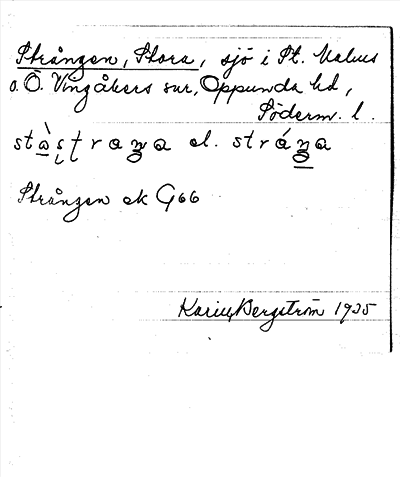 Strången, Stora, sjö i St. Malms
o. Ö. Vingåkers snr, Oppunda hd,
Söderm. l.
el.
Strången ek G66
Karin Bergström 1935